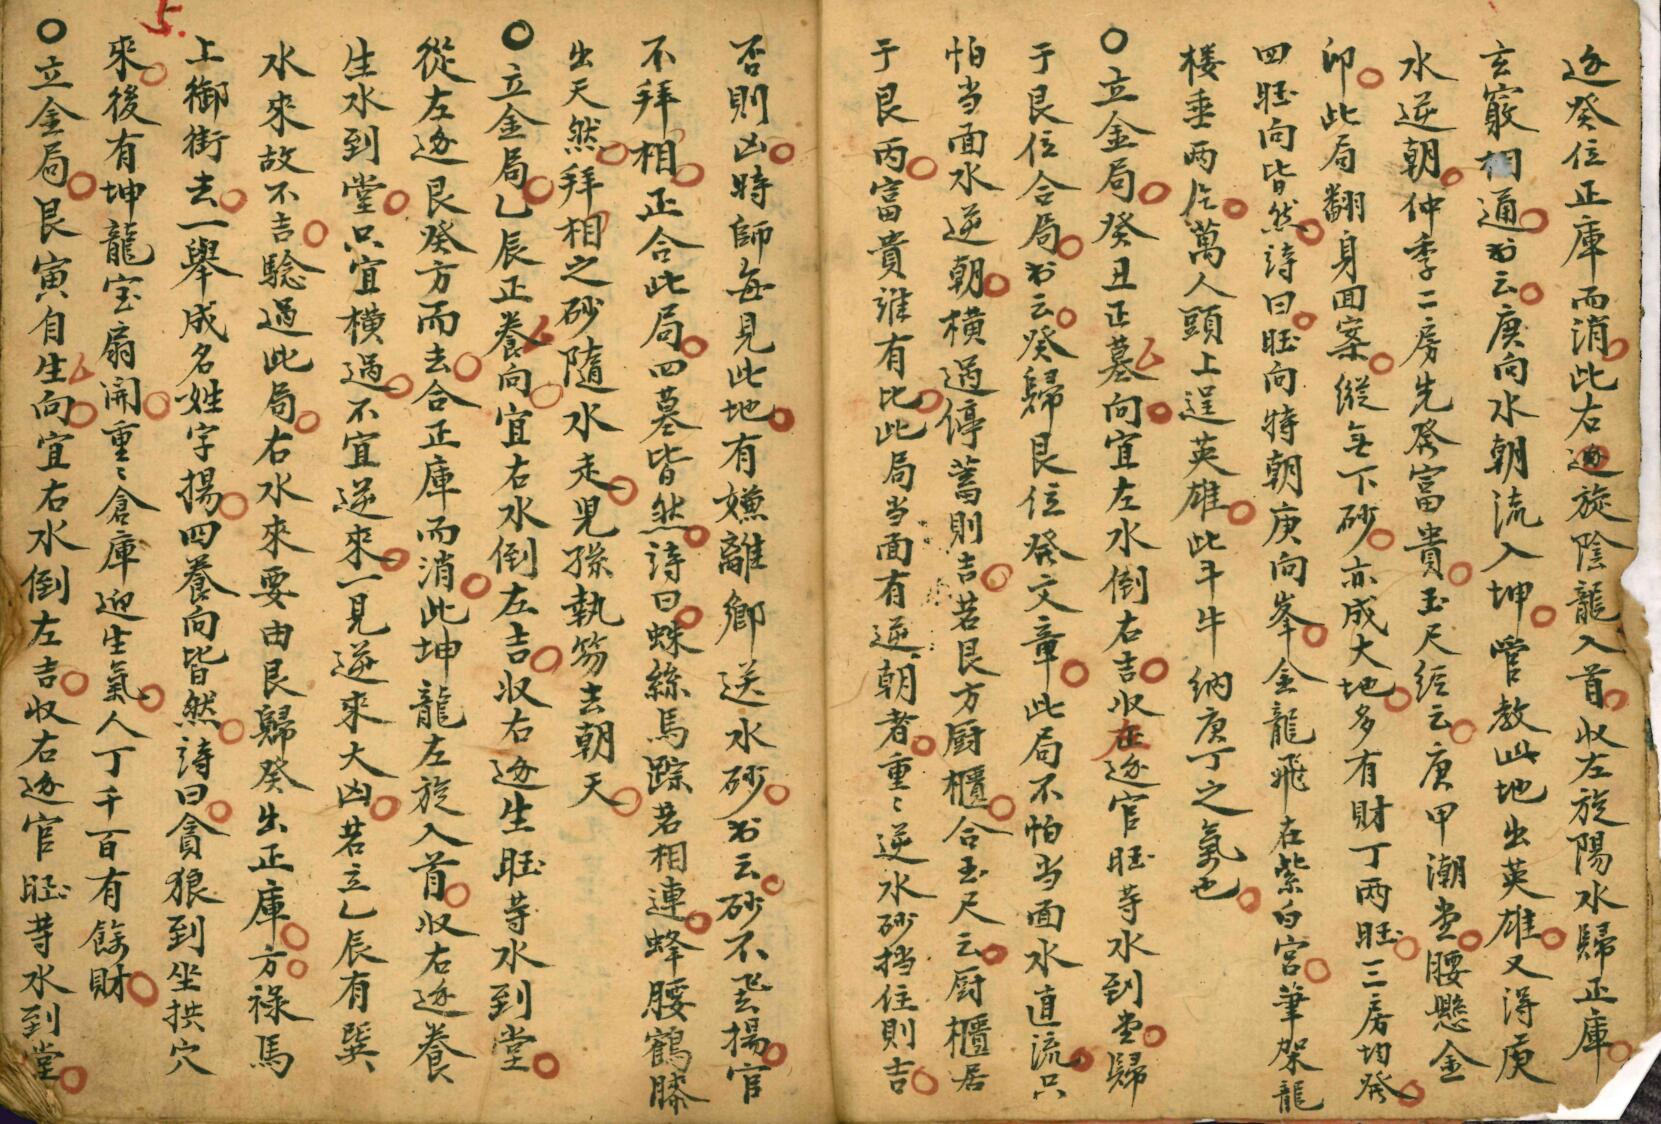 逆癸位正庫而消此右逆旋陰龍入首收左旋陽水歸正庫
玄竅相通書云庚向水朝流入坤管教此地出英雄又得庚
水逆朝仲季二房先發富貴玉尺經云庚甲潮堂腰懸金
印此局翻身面案縱無下砂亦成大地多有財丁兩旺三房均發
四旺向皆然詩曰旺向特朝庚向峯金龍飛在紫白宮筆架龍
楼垂两片萬人頭上逞英雄此斗牛納庚丁之氣也
○立金局癸丑正墓向宜左水倒右吉收左逆官旺等水到堂歸
于艮位合局書云癸歸艮位發文章此局不怕当面水直流只
怕当面水逆朝橫過停蓄則吉若艮方厨櫃合玉尺云厨櫃居
于艮丙富貴誰有比此局当面有逆朝者重〻逆水砂挡住則吉
否則凶時師每見此地有嫌離鄉送水砂書云砂不飞去揚官
不拜相正合此局四墓皆然詩曰蛛絲馬踪若相連蜂腰鶴膝
出天然拜相之砂隨水走兒孫執笏去朝天
○立金局乙辰正養向宜右水倒左吉收右逆生旺等水到堂
從左逆艮癸方而去合正庫而消此坤龍左旋入首收右逆養
生水到堂只宜橫過不宜逆來一見逆來大凶若立乙辰有巽
水來故不吉騐過此局右水來要由艮歸癸出正庫方祿馬
上御街去一舉成名姓字揚四養向皆然詩曰貪狼到坐拱穴
來後有坤龍宝扇開重〻倉庫迎生氣人丁千百有餘財
○立金局艮寅自生向宜右水倒左吉收右逆官旺等水到堂
5.